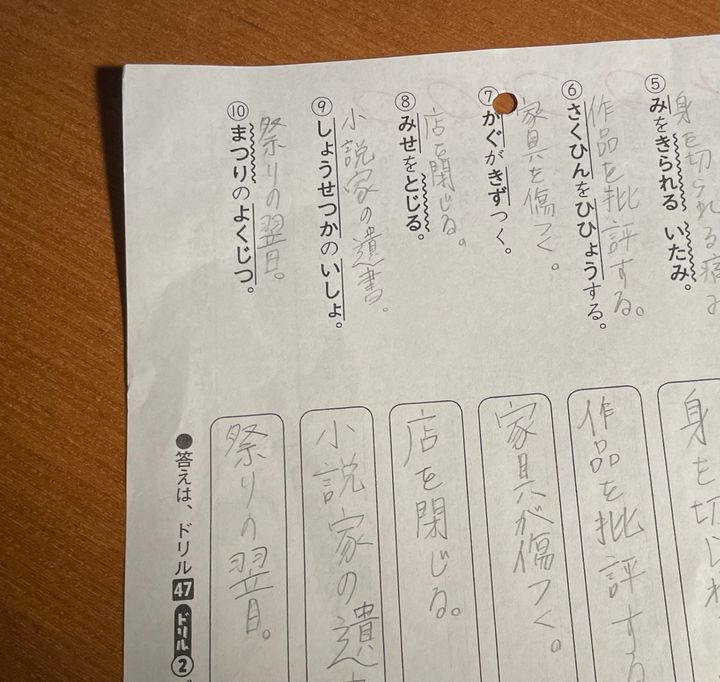 ⑤みをきられる いたみ。
身を切られる痛み
⑥さくひんをひひょうする。
作品を批評する。
⑦かぐがきずつく。
家具を傷つく。
⑧みせをとじる。
店を閉じる。
⑨しょうせつかのいしょ。
小説家の遺書。
⑩まつりのよくじつ。
祭りの翌日。
身を切られ
作品を批評する
家具が傷つく。
店を閉じる。
小説家の遺
祭りの翌日。
●答えは、ドリル47 ドリル②